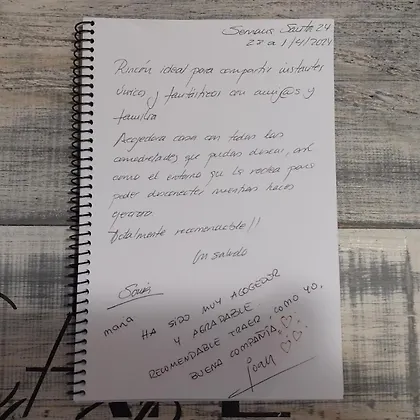 Semana Santa 24
22 a 1/4/2024
Rincón ideal para compartir instantes
únicos y fantásticos con amig@s y
familia
Acogedora casa con todas las
comodidades que puedas desear, así
como el entorno que la rodea para
poder desconectar mientras haces
Totalmente recomendable!!
Un saludo
Sonia
maria
HA SIDO MUY ACOGEDOR
Y AGRADABLE
RECOMENDABLE TRAER, COMO YO,
BUENA COMPAÑIA.